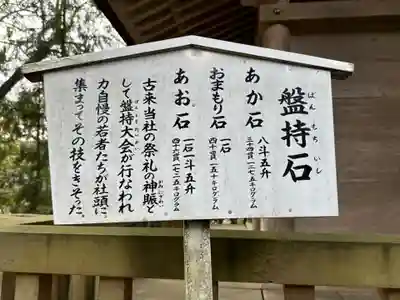 盤持石
ばん もち いし
あか石
八斗五升
三十四貫 一二七・五キログラム
おまもり石
一石
四十貫 一五〇キログラム
あお石
一石一斗五升
四十六貫 一七二・五キログラム
古来当社の祭礼の神賑と
して盤持大会が行なわれ
力自慢の若者たちが社頭に
集まってその技をきそった。